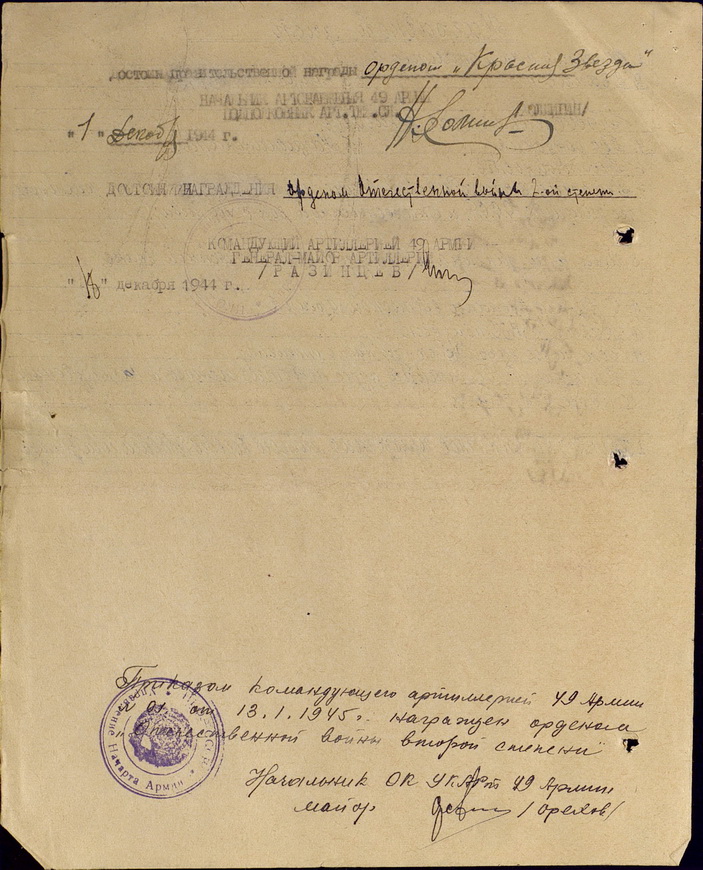 достоин правительственной награды орденом „Красная Звезда"
НАЧАЛЬНИК АРТСНАБЖЕНИЯ 49 АРМИИ
ПОДПОЛКОВНИК АРТ.ТЕХ.СЛ.
"1" декабря 1944 г.
ДОСТОИН НАГРАЖДЕНИЯ орденом Отечественной войны 2-ой степени
КОМАНДУЮЩИЙ АРТИЛЛЕРИЕЙ 49 АРМИИ
ГЕНЕРАЛ-МАЙОР АРТИЛЛЕРИИ
/РАЗИНЦЕВ/
декабря 1944 г.
Приказом командующего артиллерией 49 Армии
№ 01 от 13.1.1945 г. награжден орденом
„Отечественной войны второй степени"
Начальник ОК УКАРТ 49 Армии
майор /Орехов/
Начарта Армии